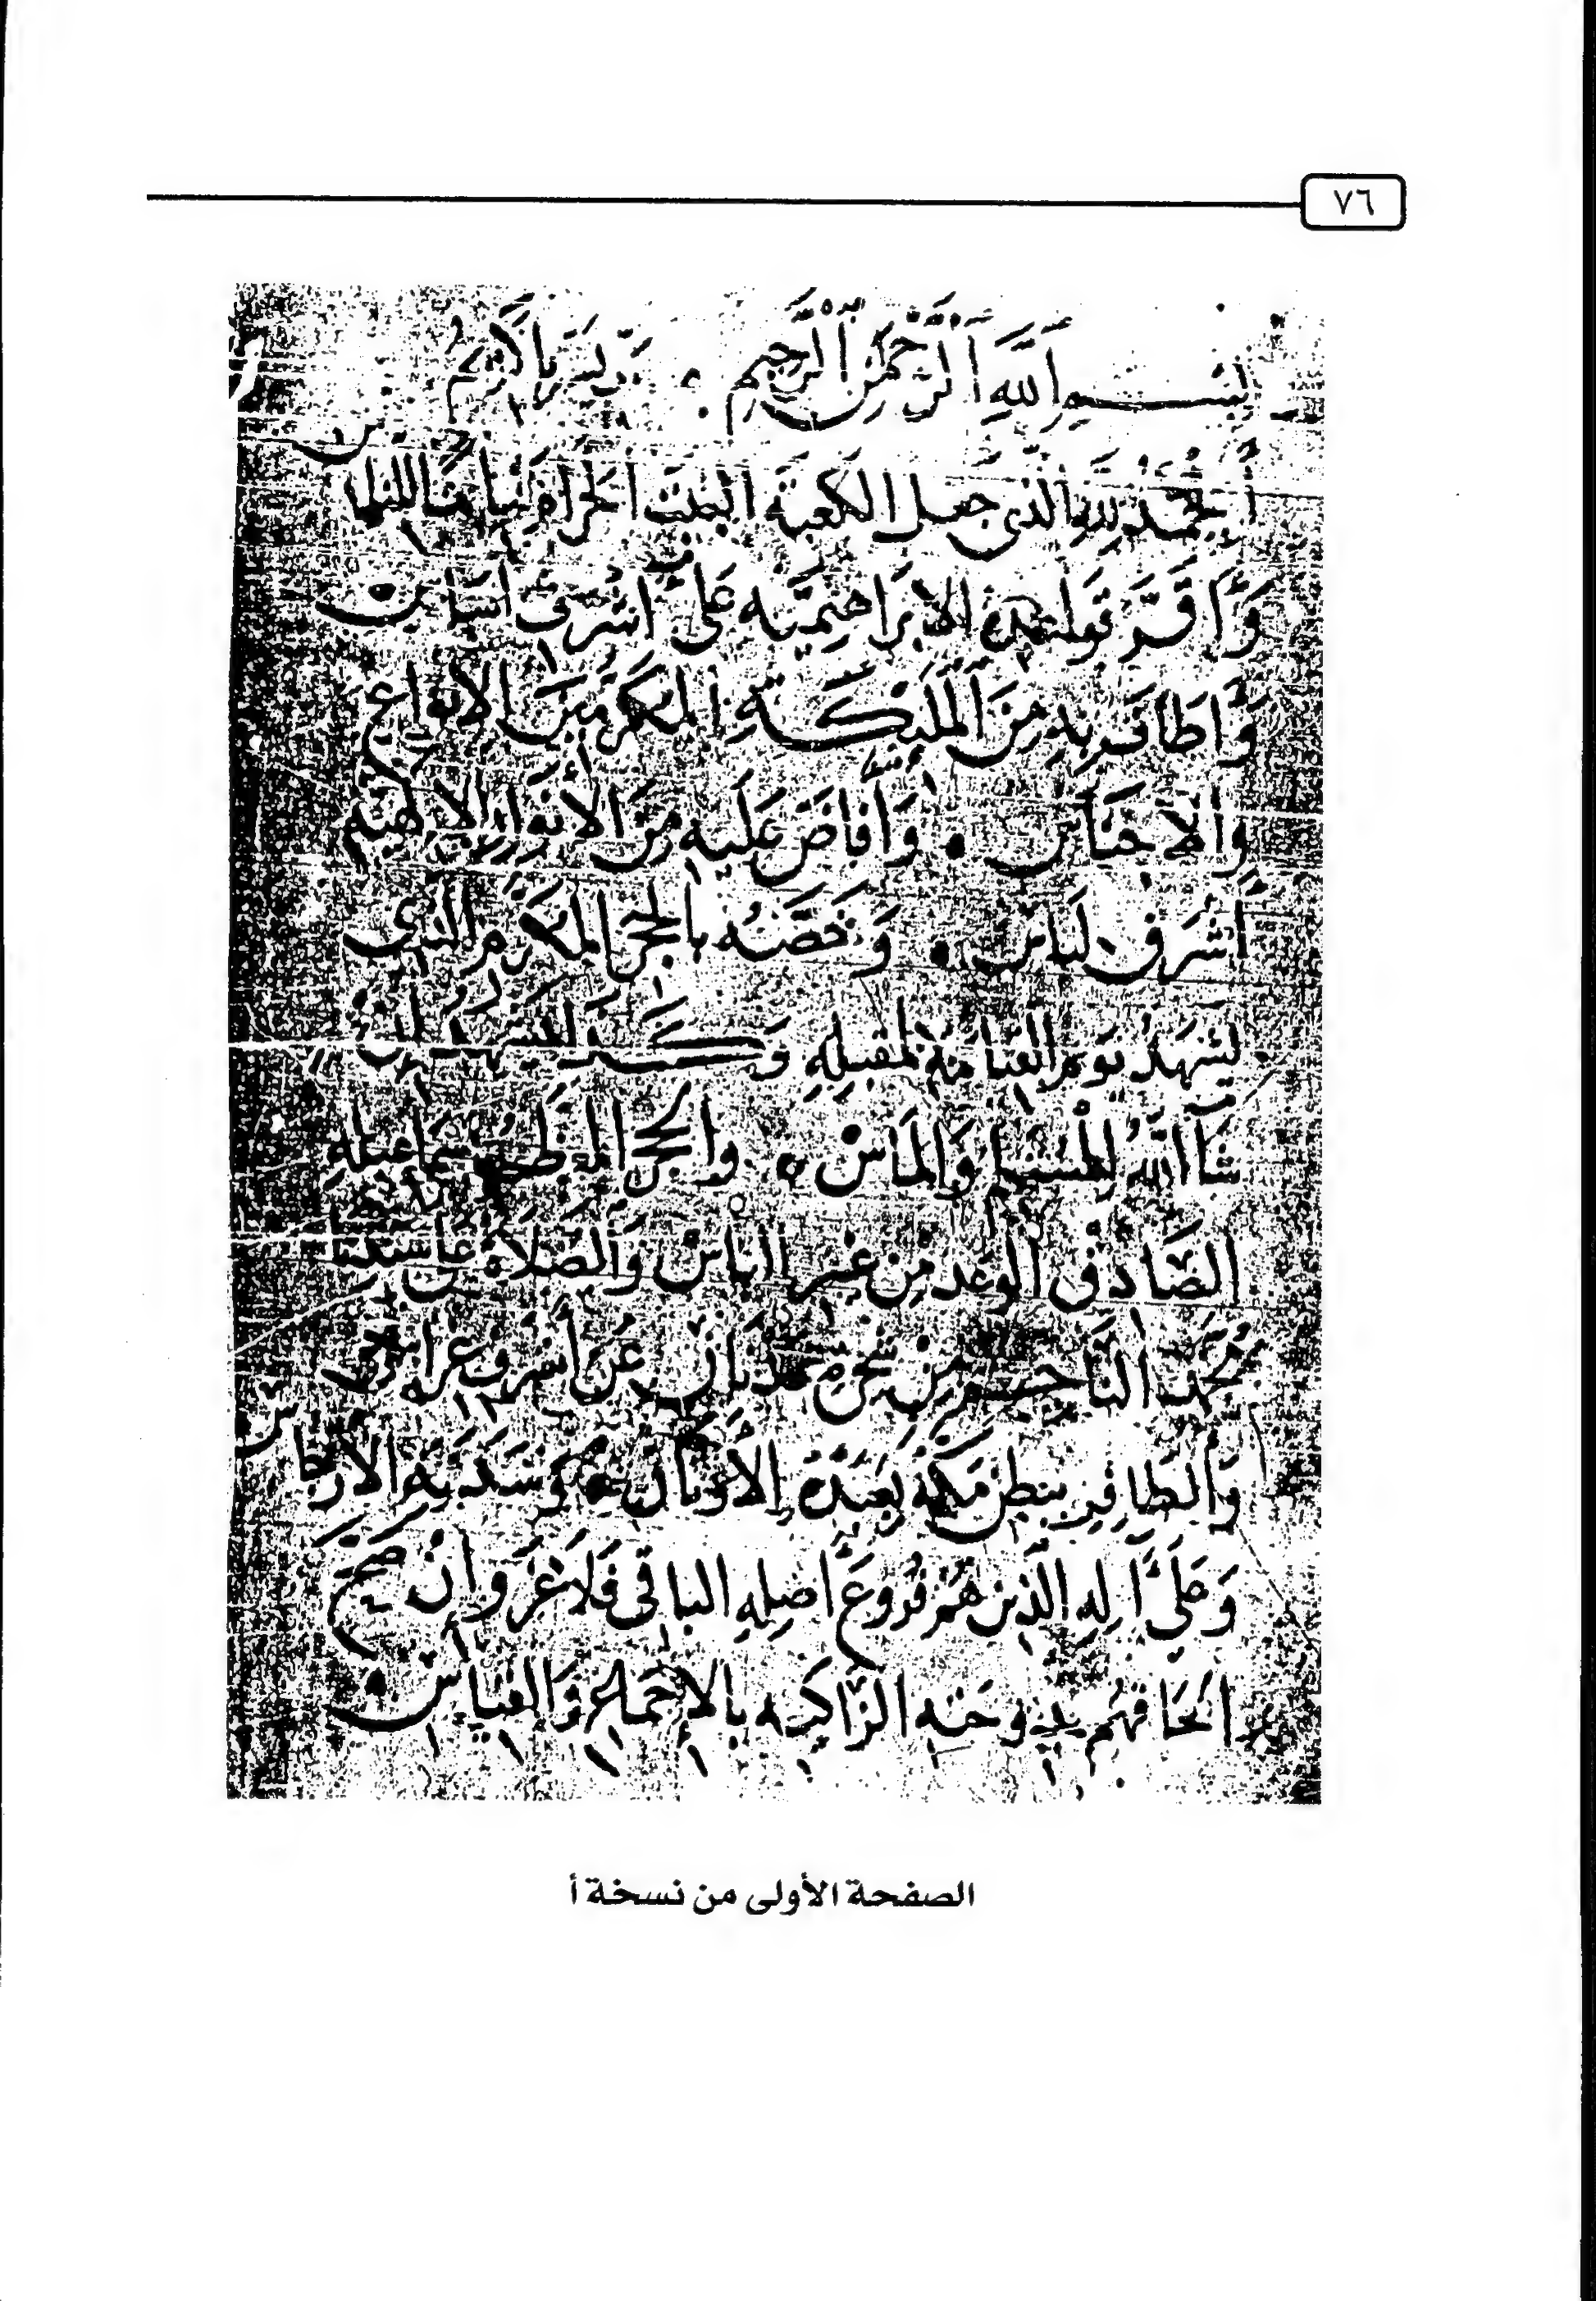 ٧٦
بسم الله الرحمن الرحيم رب يسر يا كريم
الحمد لله الذي جعل الكعبة البيت الحرام قياما للناس
وأقر قواعده الابراهيمية على أشرف أساس
وأطاف به من الملئكة المكرمين الانواع
والاجناس وأفاض عليه من الأنوار الالهية
أشرف لباس وخصه بالحجر المكرم الذي
ليشهد يوم القيامة لمقبله
شاء الله لمستلم والماس والحجر المطهر سماعيله
الصادق الوعد من غير الباس والصلاة على سيدنا
محمد الناجم من شجرة عدنان عن أشرف غراس
والطافر ببطن مكة الأرجاس
وعلى آله الذين هم فروع أصله الباقي فلا غرو ان صح
الحاقهم بدوحته الزاكية بالاجماع والقياس
الصفحة الأولى من نسخة أ